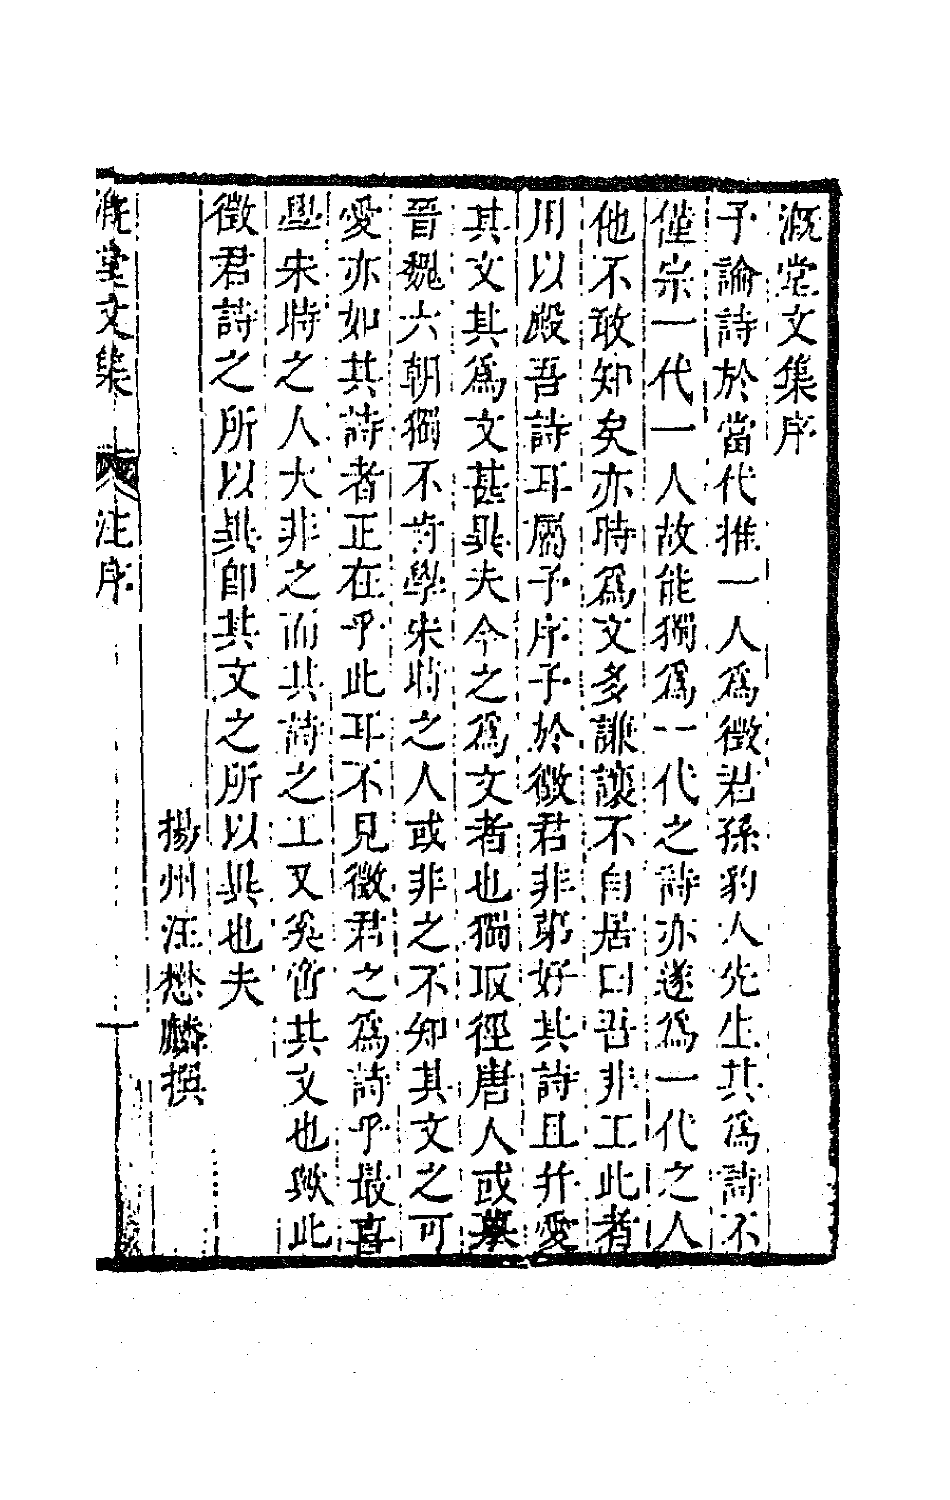 溉堂文集序
予論詩於當代推一人爲徵君孫豹人先生其爲詩不
僅宗一代一人故能獨爲一代之詩亦遂爲一代之人
他不敢知矣亦時爲文多謙讓不自居曰吾非工此者
用以殿吾詩耳屬予序予於徵君非第好其詩且幷愛
其文其爲文甚異夫今之爲文者也獨取徑唐人或摹
晉魏六朝獨不肯學宋時之人或非之不知其文之可
愛亦如其詩者正在乎此耳不見徵君之爲詩乎最喜
學宋時之人大非之而其詩之工又奚啻其文也歟此
徵君詩之所以異卽其文之所以異也夫
揚州汪懋麟撰
溉堂文集
汪序